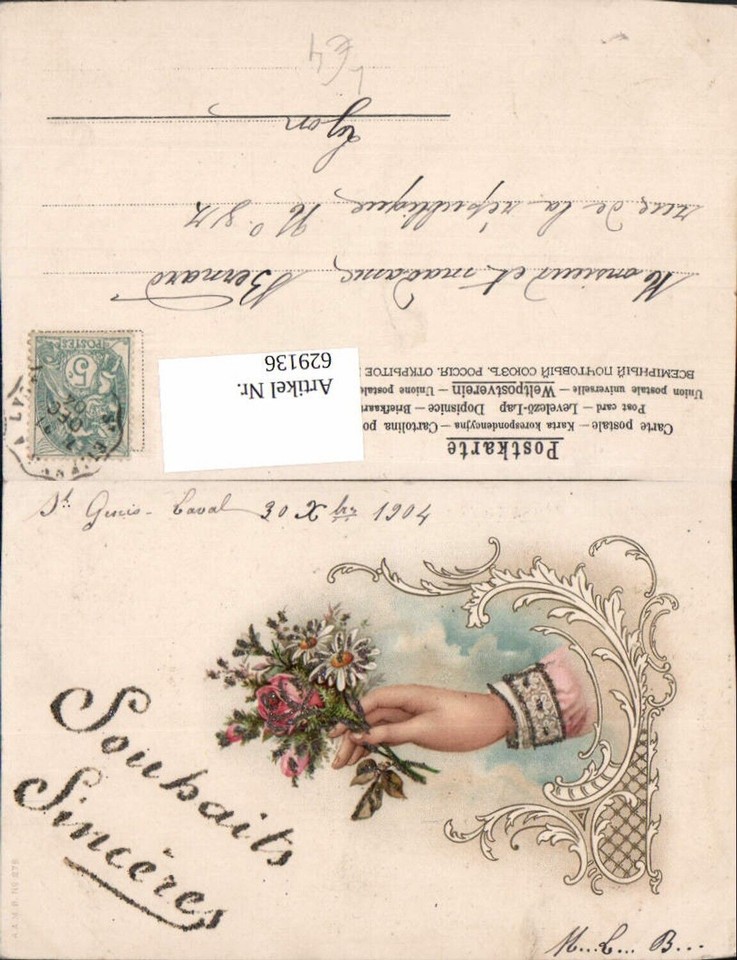 Postkarte
Carte postale — Karta korespondencyjna — Cartolina po
Post card — Levelező-Lap Dopisnice — Briefkaart
Union postale universelle — Weltpostverein — Unione postale
ВСЕМІРНЫЙ ПОЧТОВЫЙ СОЮЗЪ. РОССІЯ. ОТКРЫТОЕ
Artikel Nr.
629136
5
POSTES
DEC
04
Monsieur et madame Bernard
rue de la république No
Lyon
1€4
St Genis-Laval 30 Xbre 1904
Souhaits
Sincères
M...L... B...